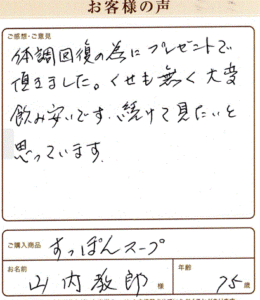 お客様の声
ご感想・ご意見
体調回復の為にプレゼントで
頂きました。くせも無く大変
飲み安いです。続けて見たいと
思っています。
ご購入商品 すっぽんスープ
お名前 山内教郎 様 年齢 75 歳